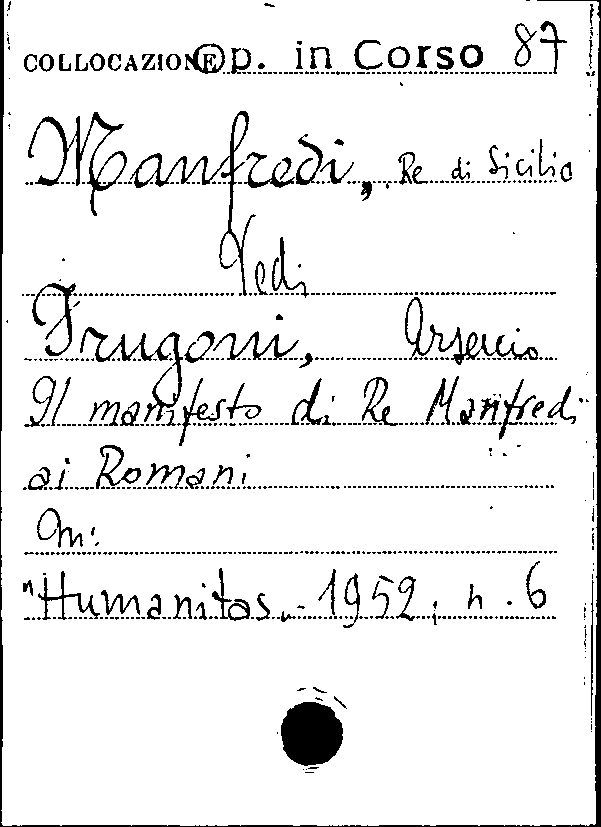 COLLOCAZIONE Op. in Corso 87
Manfredi, Re di Sicilia
Vedi
Frugoni, Arsenio
Il manifesto di Re Manfredi
ai Romani
In:
"Humanitas" 1952, n. 6